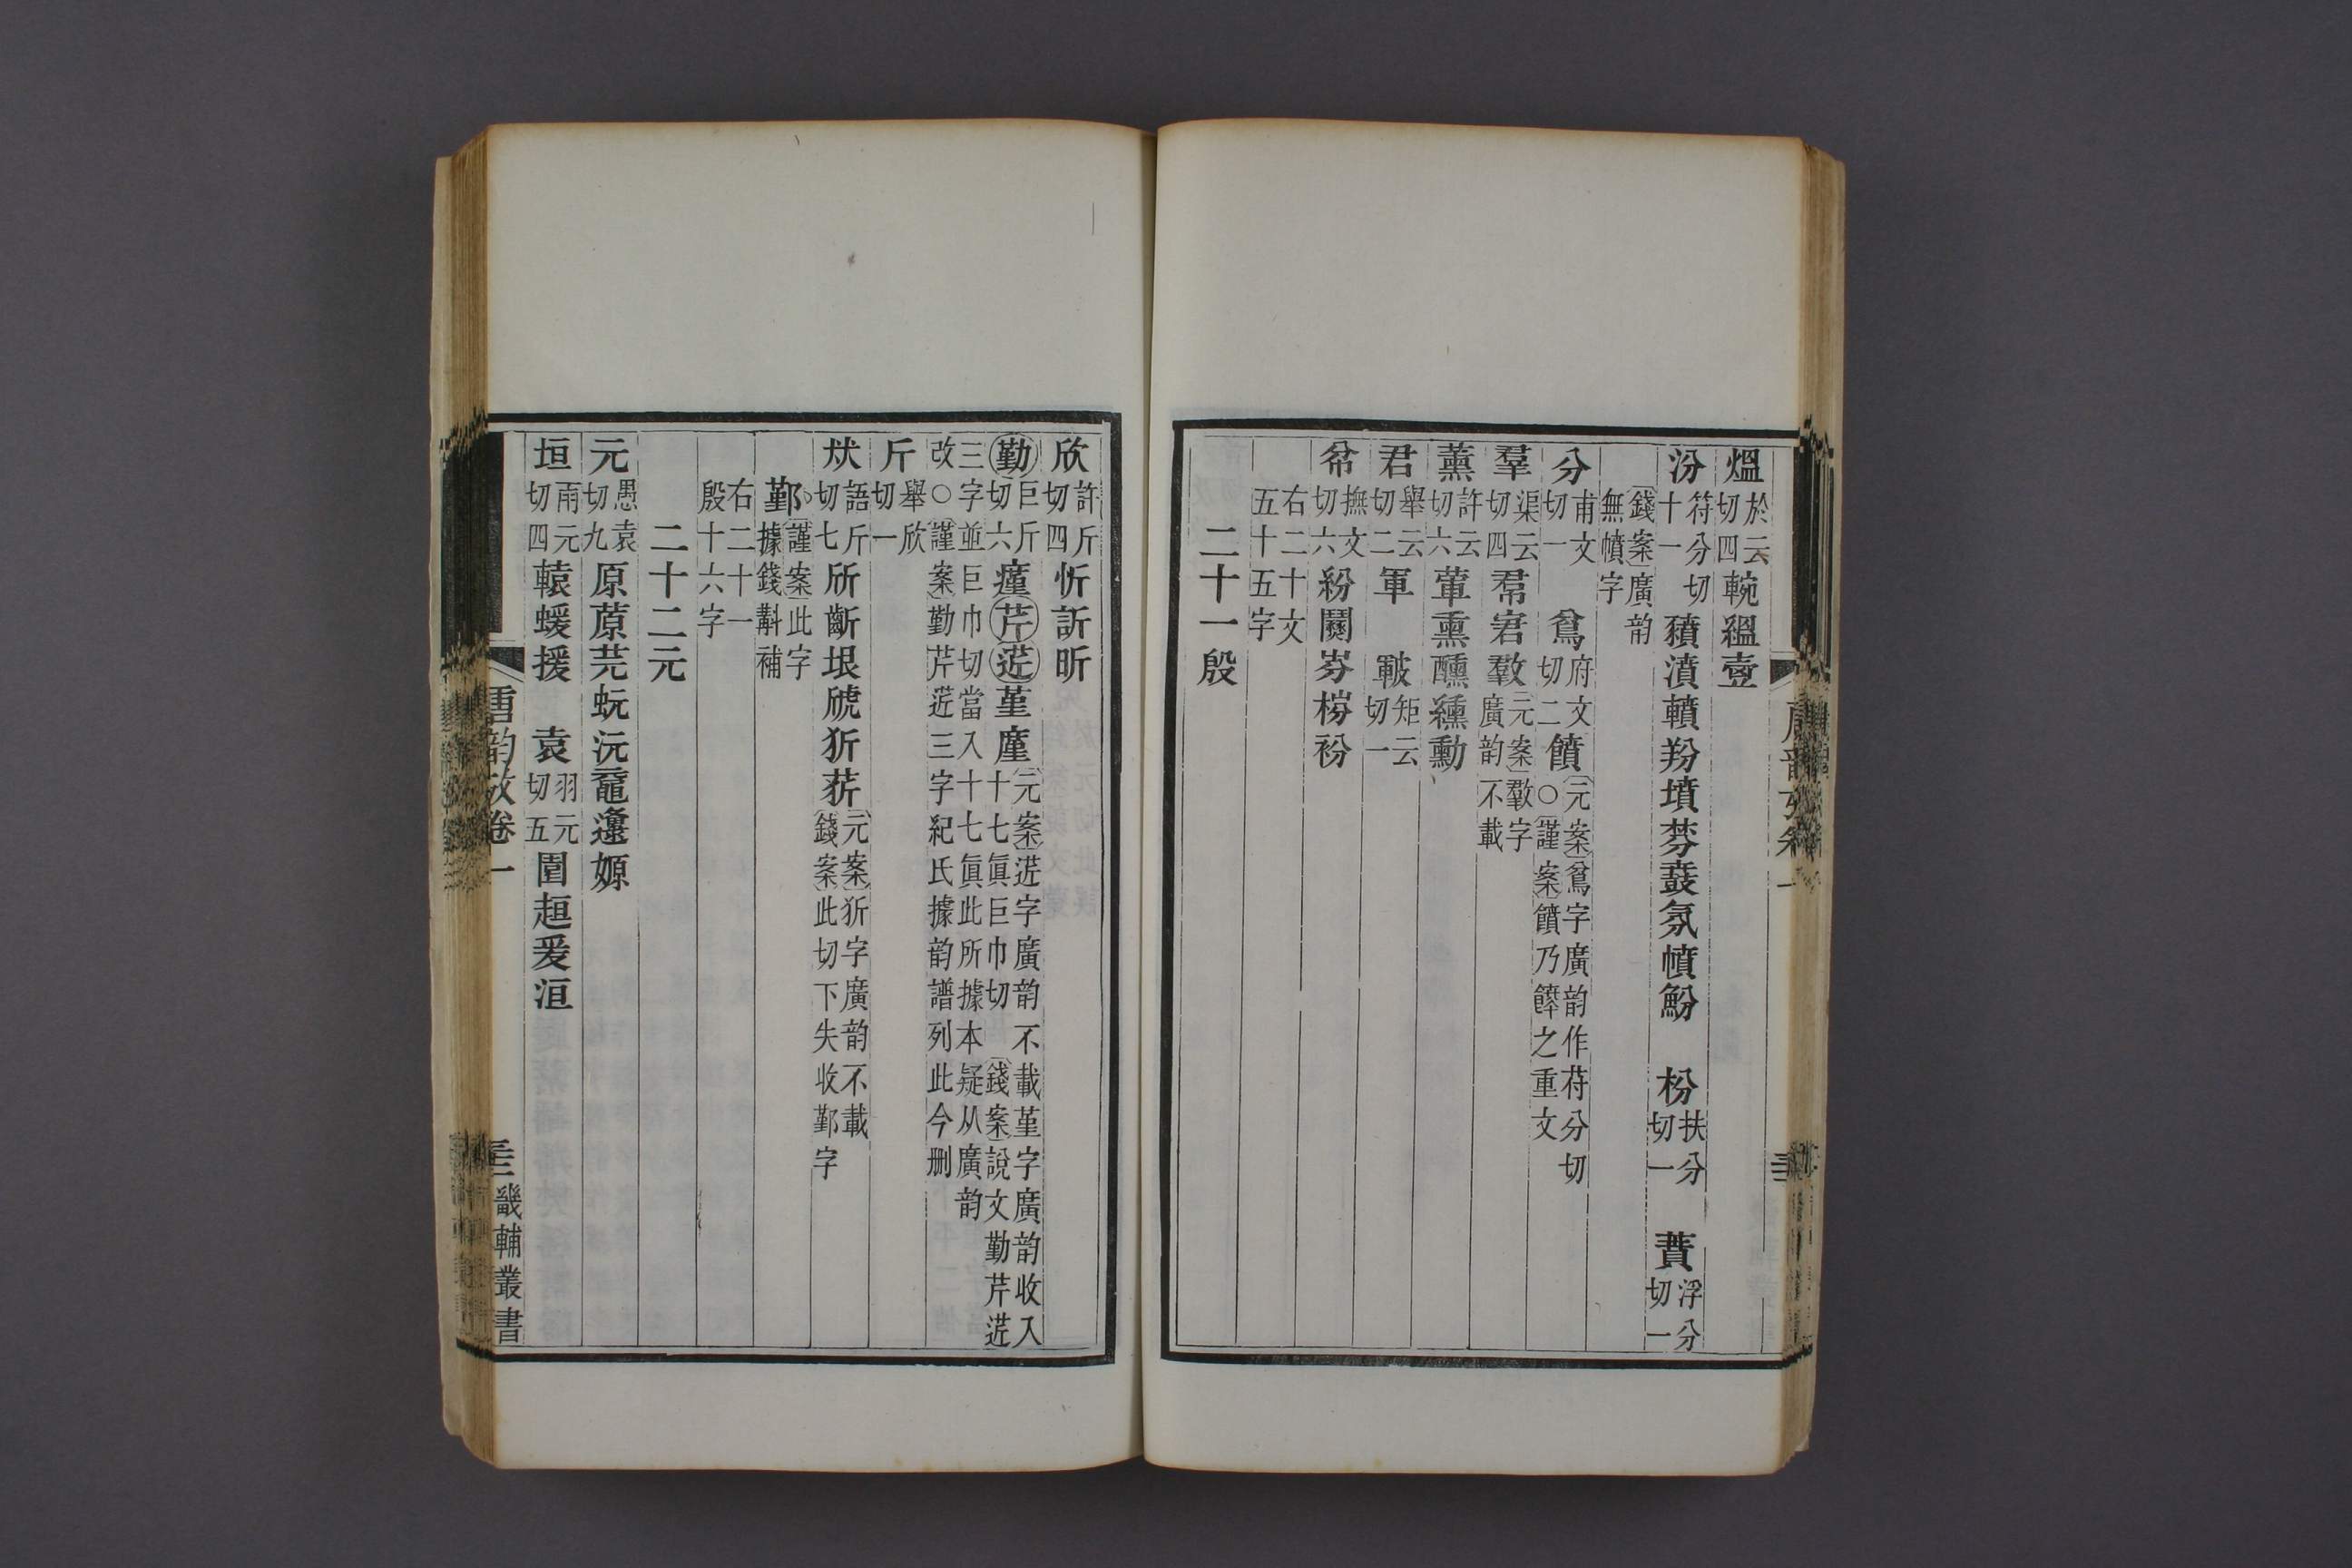 熅於云切四輓緼壹
汾符分切十一豶濆轒羒墳棼鼖氛幩魵　枌扶分切一　蕡浮分切一
錢案廣韵無幩字
分甫文切一　鳻府文切二饙元案鳻字廣韵作苻分切○謹案饙乃餴之重文
羣渠云切四帬宭羣元案羣字廣韵不載
薰許云切六葷熏醺纁勳
君舉云切二軍　皸矩云切一
帉撫文切六紛闅岎梤衯
右二十文五十五字
二十一殷
欣許斤切四忻訢昕
勤巨斤切六瘽芹菦堇廑元案菦字廣韵不載堇字廣韵收入十七眞巨巾切　錢案說文勤芹菦
三字並巨巾切當入十七眞此所據本疑从廣韵改○謹案勤芹菦三字紀氏據韵譜列此今刪
斤舉欣切一
㹞語斤切七斦齗垠虓狋菥元案狋字廣韵不載錢案此切下失收鄞字
鄞謹案此字據錢斠補
右二十一殷十六字
二十二元
元愚袁切九原蒝芫蚖沅黿邍嫄
垣雨元切四轅蝯援　袁羽元切五園趄爰洹
唐韵攷卷一
三二畿輔叢書